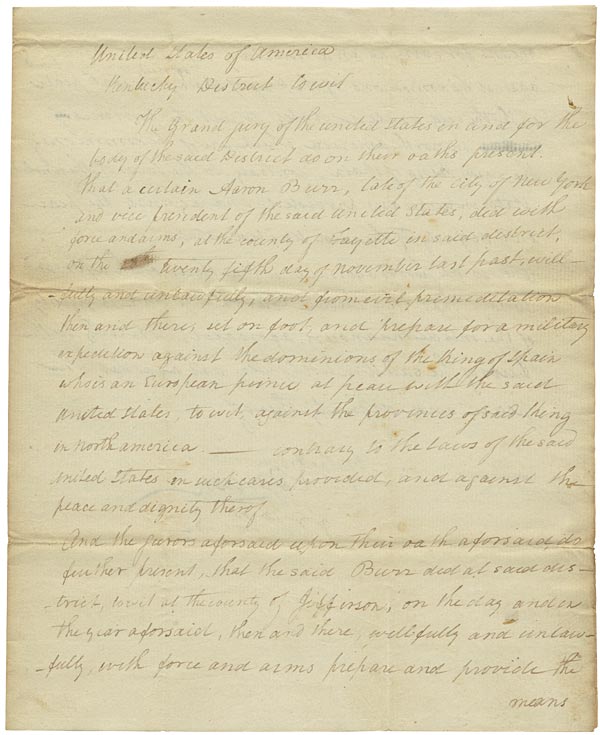 United States of America
Kentucky District towit
The Grand jury of the united States in and for the
body of the said District do on their oaths present.
That a certain Aaron Burr, late of the city of New York
and vice president of the said united States, did with
force and arms, at the county of Fayette in said district,
on the twenty fifth day of november last past, will-
-fully and unlawfully, and from evil premeditation
then and there, set on foot, and prepare for a military
expedition against the dominions of the King of Spain
who is an European prince at peace with the said
united States, to wit, against the provinces of said King
in north america. — contrary to the laws of the said
united States in such cases provided, and against the
peace and dignity therof
And the jurors aforsaid upon their oath aforsaid, do
further present, that the said Burr did at said dis-
-trict, towit at the county of Jefferson, on the day and in
the year aforsaid, then and there, willfully and unlaw-
-fully, with force and arms prepare and provide the
means